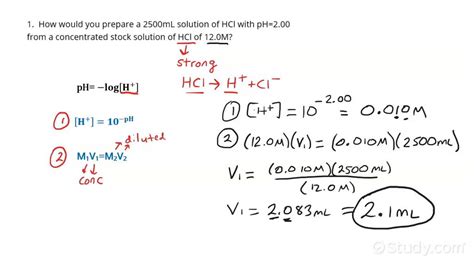 1. How would you prepare a 2500mL solution of HCl with pH=2.00
from a concentrated stock solution of HCl of 12.0M?
strong
HCl → H⁺ + Cl⁻
pH= −log[H⁺]
① [H⁺] = 10⁻ᵖᴴ
diluted
② M₁V₁=M₂V₂
conc
① [H⁺] = 10^-2.00 = 0.010M
② (12.0M)(V₁) = (0.010M)(2500mL)
V₁ = (0.010M)(2500mL)
(12.0M)
V₁ = 2.083mL = 2.1mL
Study.com